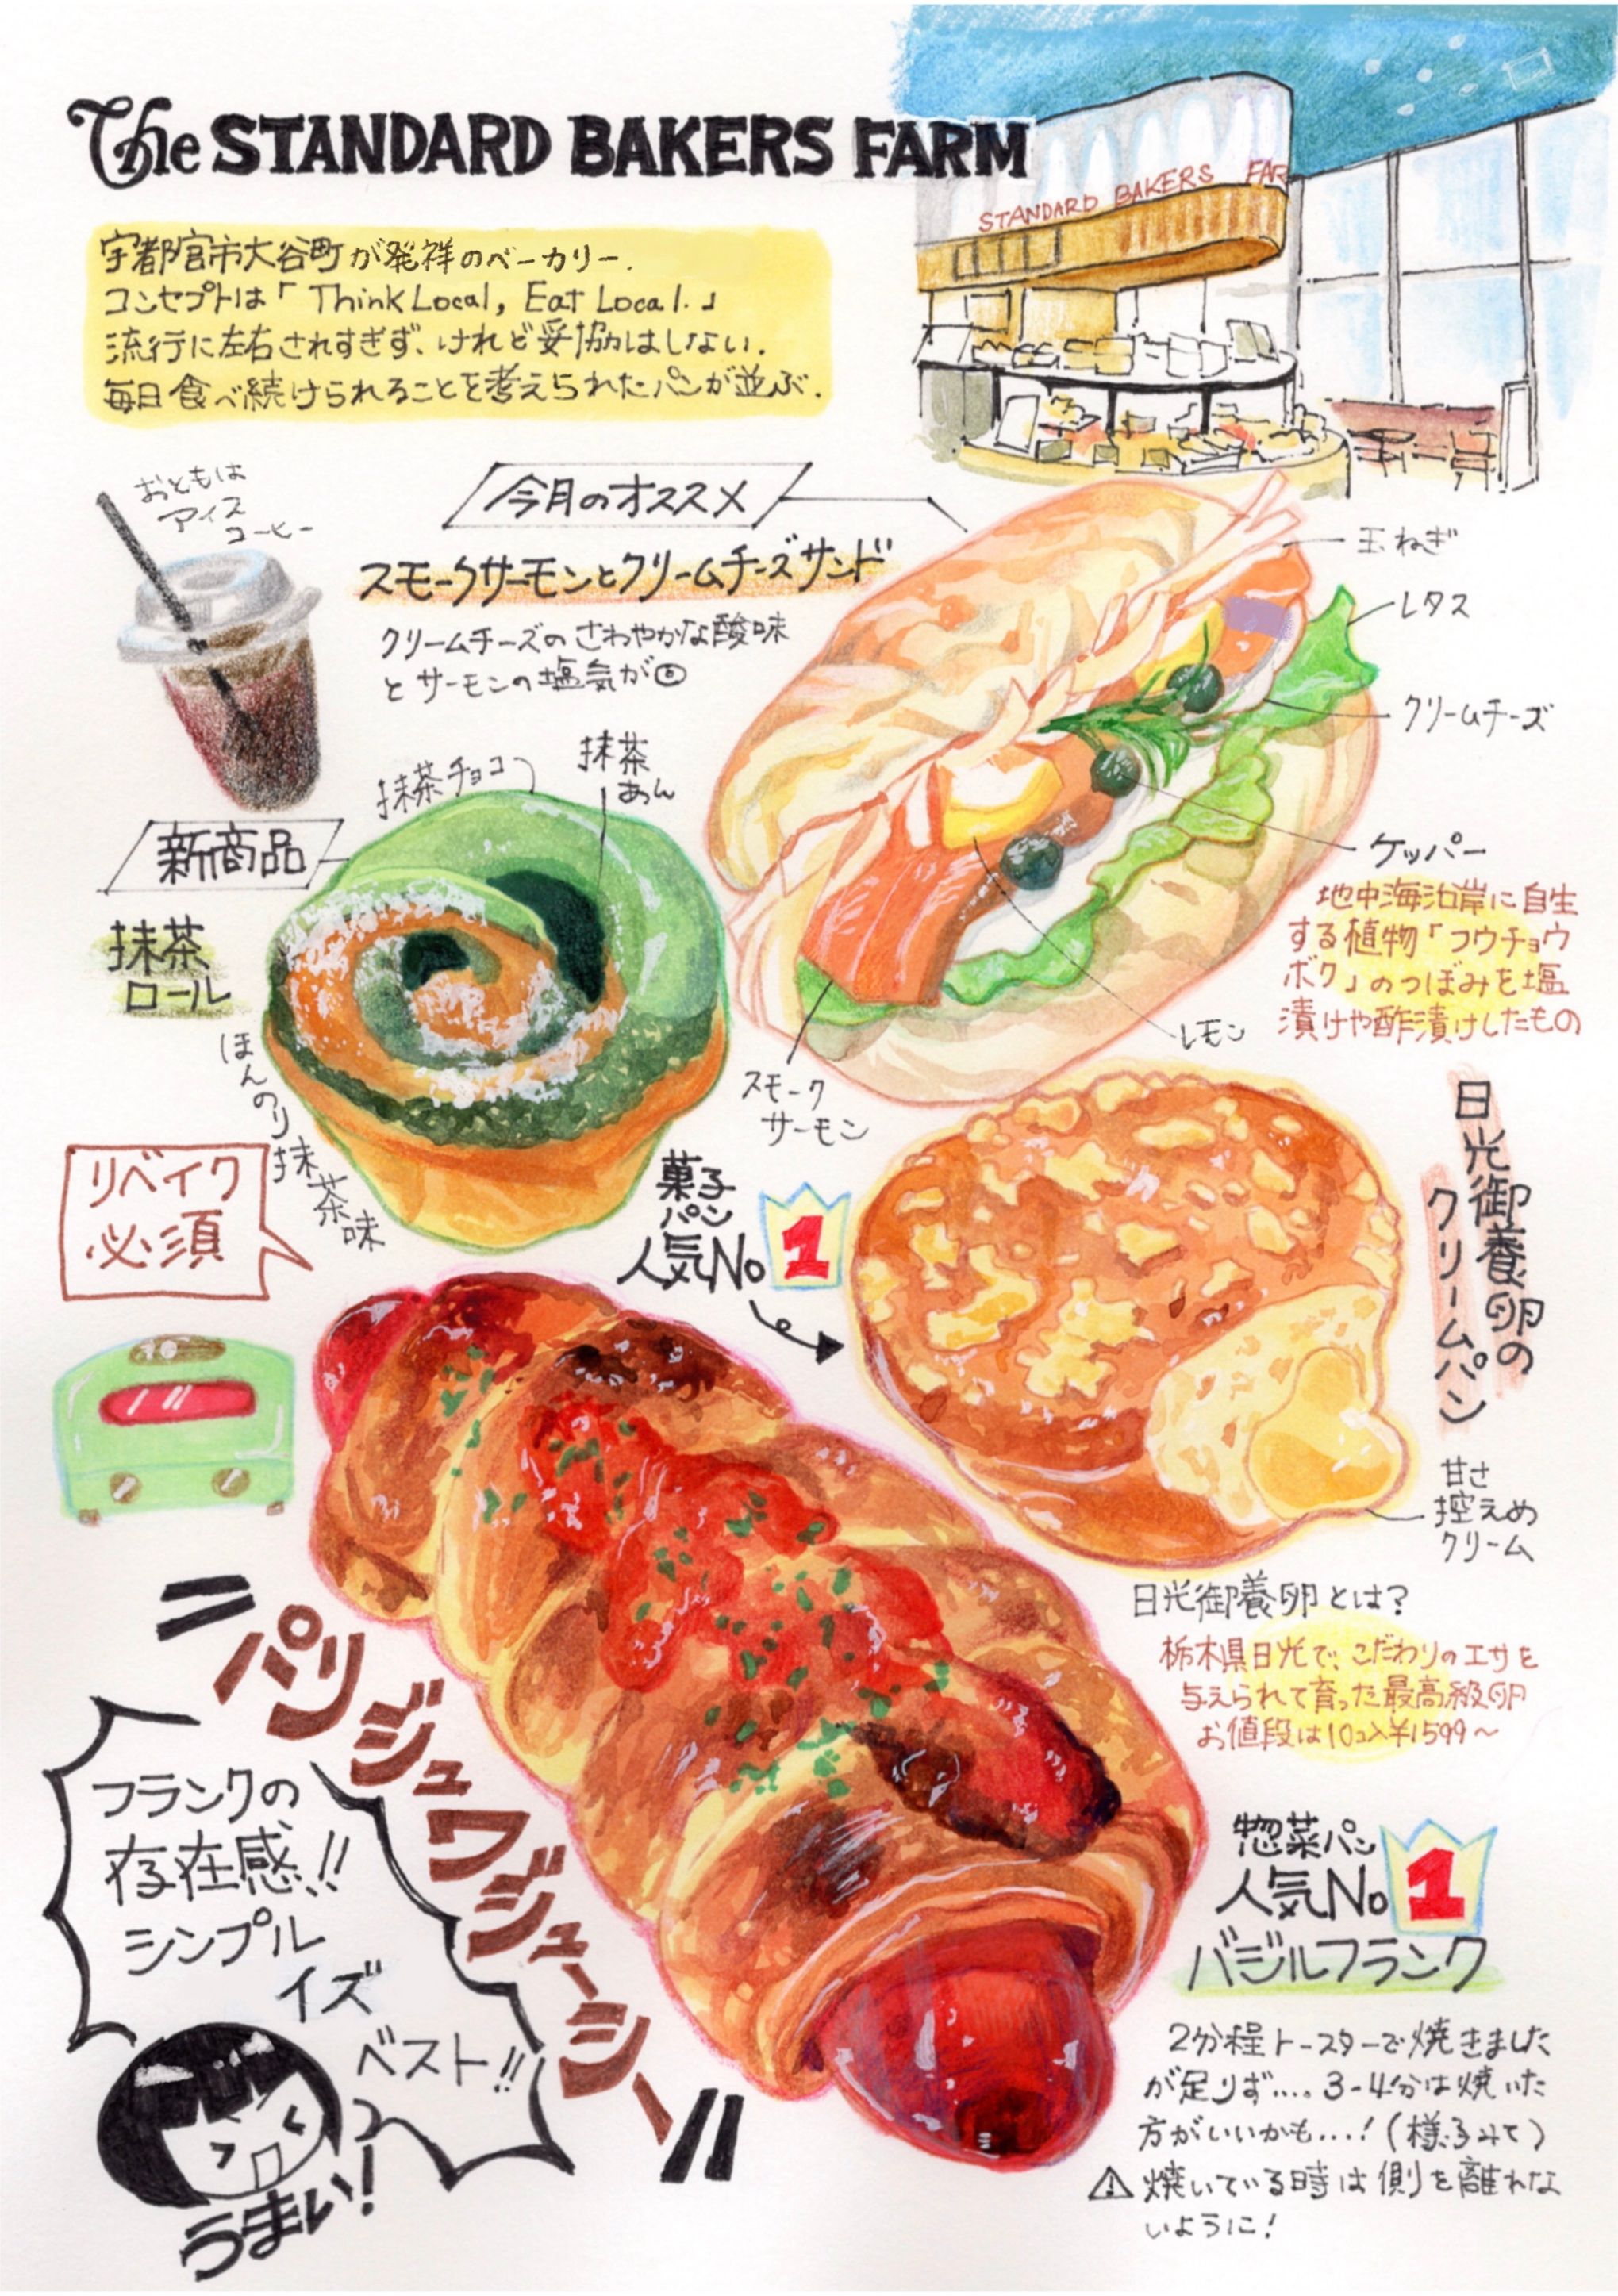 The STANDARD BAKERS FARM
STANDARD BAKERS FAR
宇都宮市大谷町が発祥のベーカリー.
コンセプトは「Think Local, Eat Local.」
流行に左右されすぎず、けれど妥協はしない.
毎日食べ続けられることを考えられたパンが並ぶ.
おともは
アイス
コーヒー
今月のオススメ
スモークサーモンとクリームチーズサンド
クリームチーズのさわやかな酸味
とサーモンの塩気が◎
玉ねぎ
レタス
クリームチーズ
ケッパー
地中海沿岸に自生
する植物「フウチョウ
ボク」のつぼみを塩
漬けや酢漬けしたもの
レモン
スモーク
サーモン
抹茶チョコ
抹茶
あん
新商品
抹茶
ロール
ほんのり抹茶味
リベイク
必須
菓子
パン
人気No 1
日光御養卵の
クリームパン
甘さ
控えめ
クリーム
日光御養卵とは?
栃木県日光で、こだわりのエサを
与えられて育った最高級卵
お値段は10コ入¥1599〜
パリジュワジューシー
フランクの
存在感!!
シンプル
イズ
ベスト!!
うまい!
惣菜パン
人気No 1
バジルフランク
2分程トースターで焼きました
が足りず…。3-4分は焼いた
方がいいかも…!(様子みて)
⚠焼いている時は側を離れな
いように!